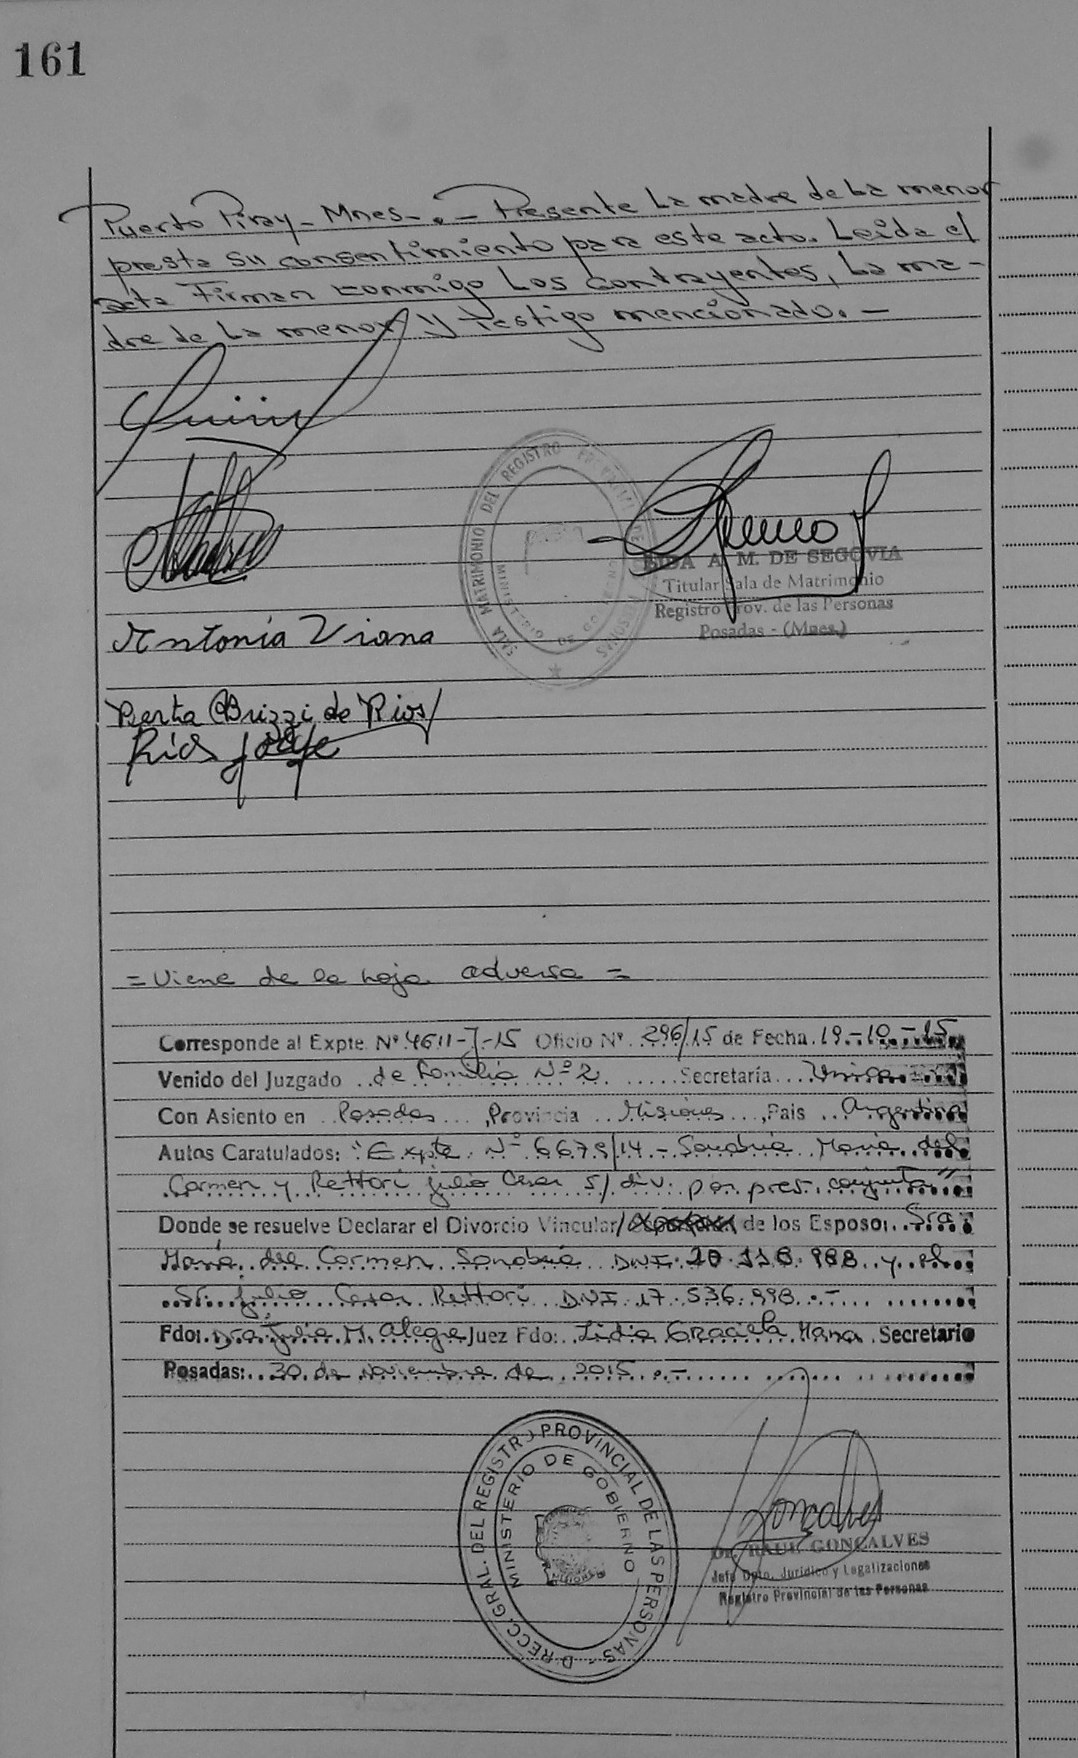 161
Puerto Piray - Mnes - . - Presente La madre de La menor
presta su consentimiento para este acto. Leida el
acta Firman conmigo Los contrayentes, La ma-
dre de La menor y Testigo mencionado. -
SALA MATRIMONIO DEL REGISTRO PROVINCIAL DE PERSONAS
MINISTERIO DE GOBIERNO
A. M. DE SEGOVIA
Titular Sala de Matrimonio
Registro Prov. de las Personas
Posadas - (Mnes.)
Antonia Viana
Berta Brizzi de Rios
Rios Jorge
= Viene de la hoja adversa =
Corresponde al Expte. Nº 4611-J-15 Oficio Nº 296/15 de Fecha 19-10-15
Venido del Juzgado de Familia Nº 2 Secretaría Unica
Con Asiento en Posadas, Provincia Misiones, Pais Argentina
Autos Caratulados: "Expte. Nº 6679/14 - Sanabria Maria del
Carmen y Rettori Julio Cesar s/ div. por pres. conjunta"
Donde se resuelve Declarar el Divorcio Vincular/ de los Esposos Sra.
María del Carmen Sanabria DNI. 20.118.988 y el
Sr. Julio Cesar Rettori DNI 17.536.998.-
Fdo: Dra. Julia M. Alegre Juez Fdo: Lidia Graciela Secretario
Posadas: 30 de Noviembre de 2015.-
DIRECC. GRAL. DEL REGISTRO PROVINCIAL DE LAS PERSONAS
MINISTERIO DE GOBIERNO
MISIONES
Goncalves
Dr. RAUL GONCALVES
Jefe Dpto. Jurídico y Legalizaciones
Registro Provincial de las Personas